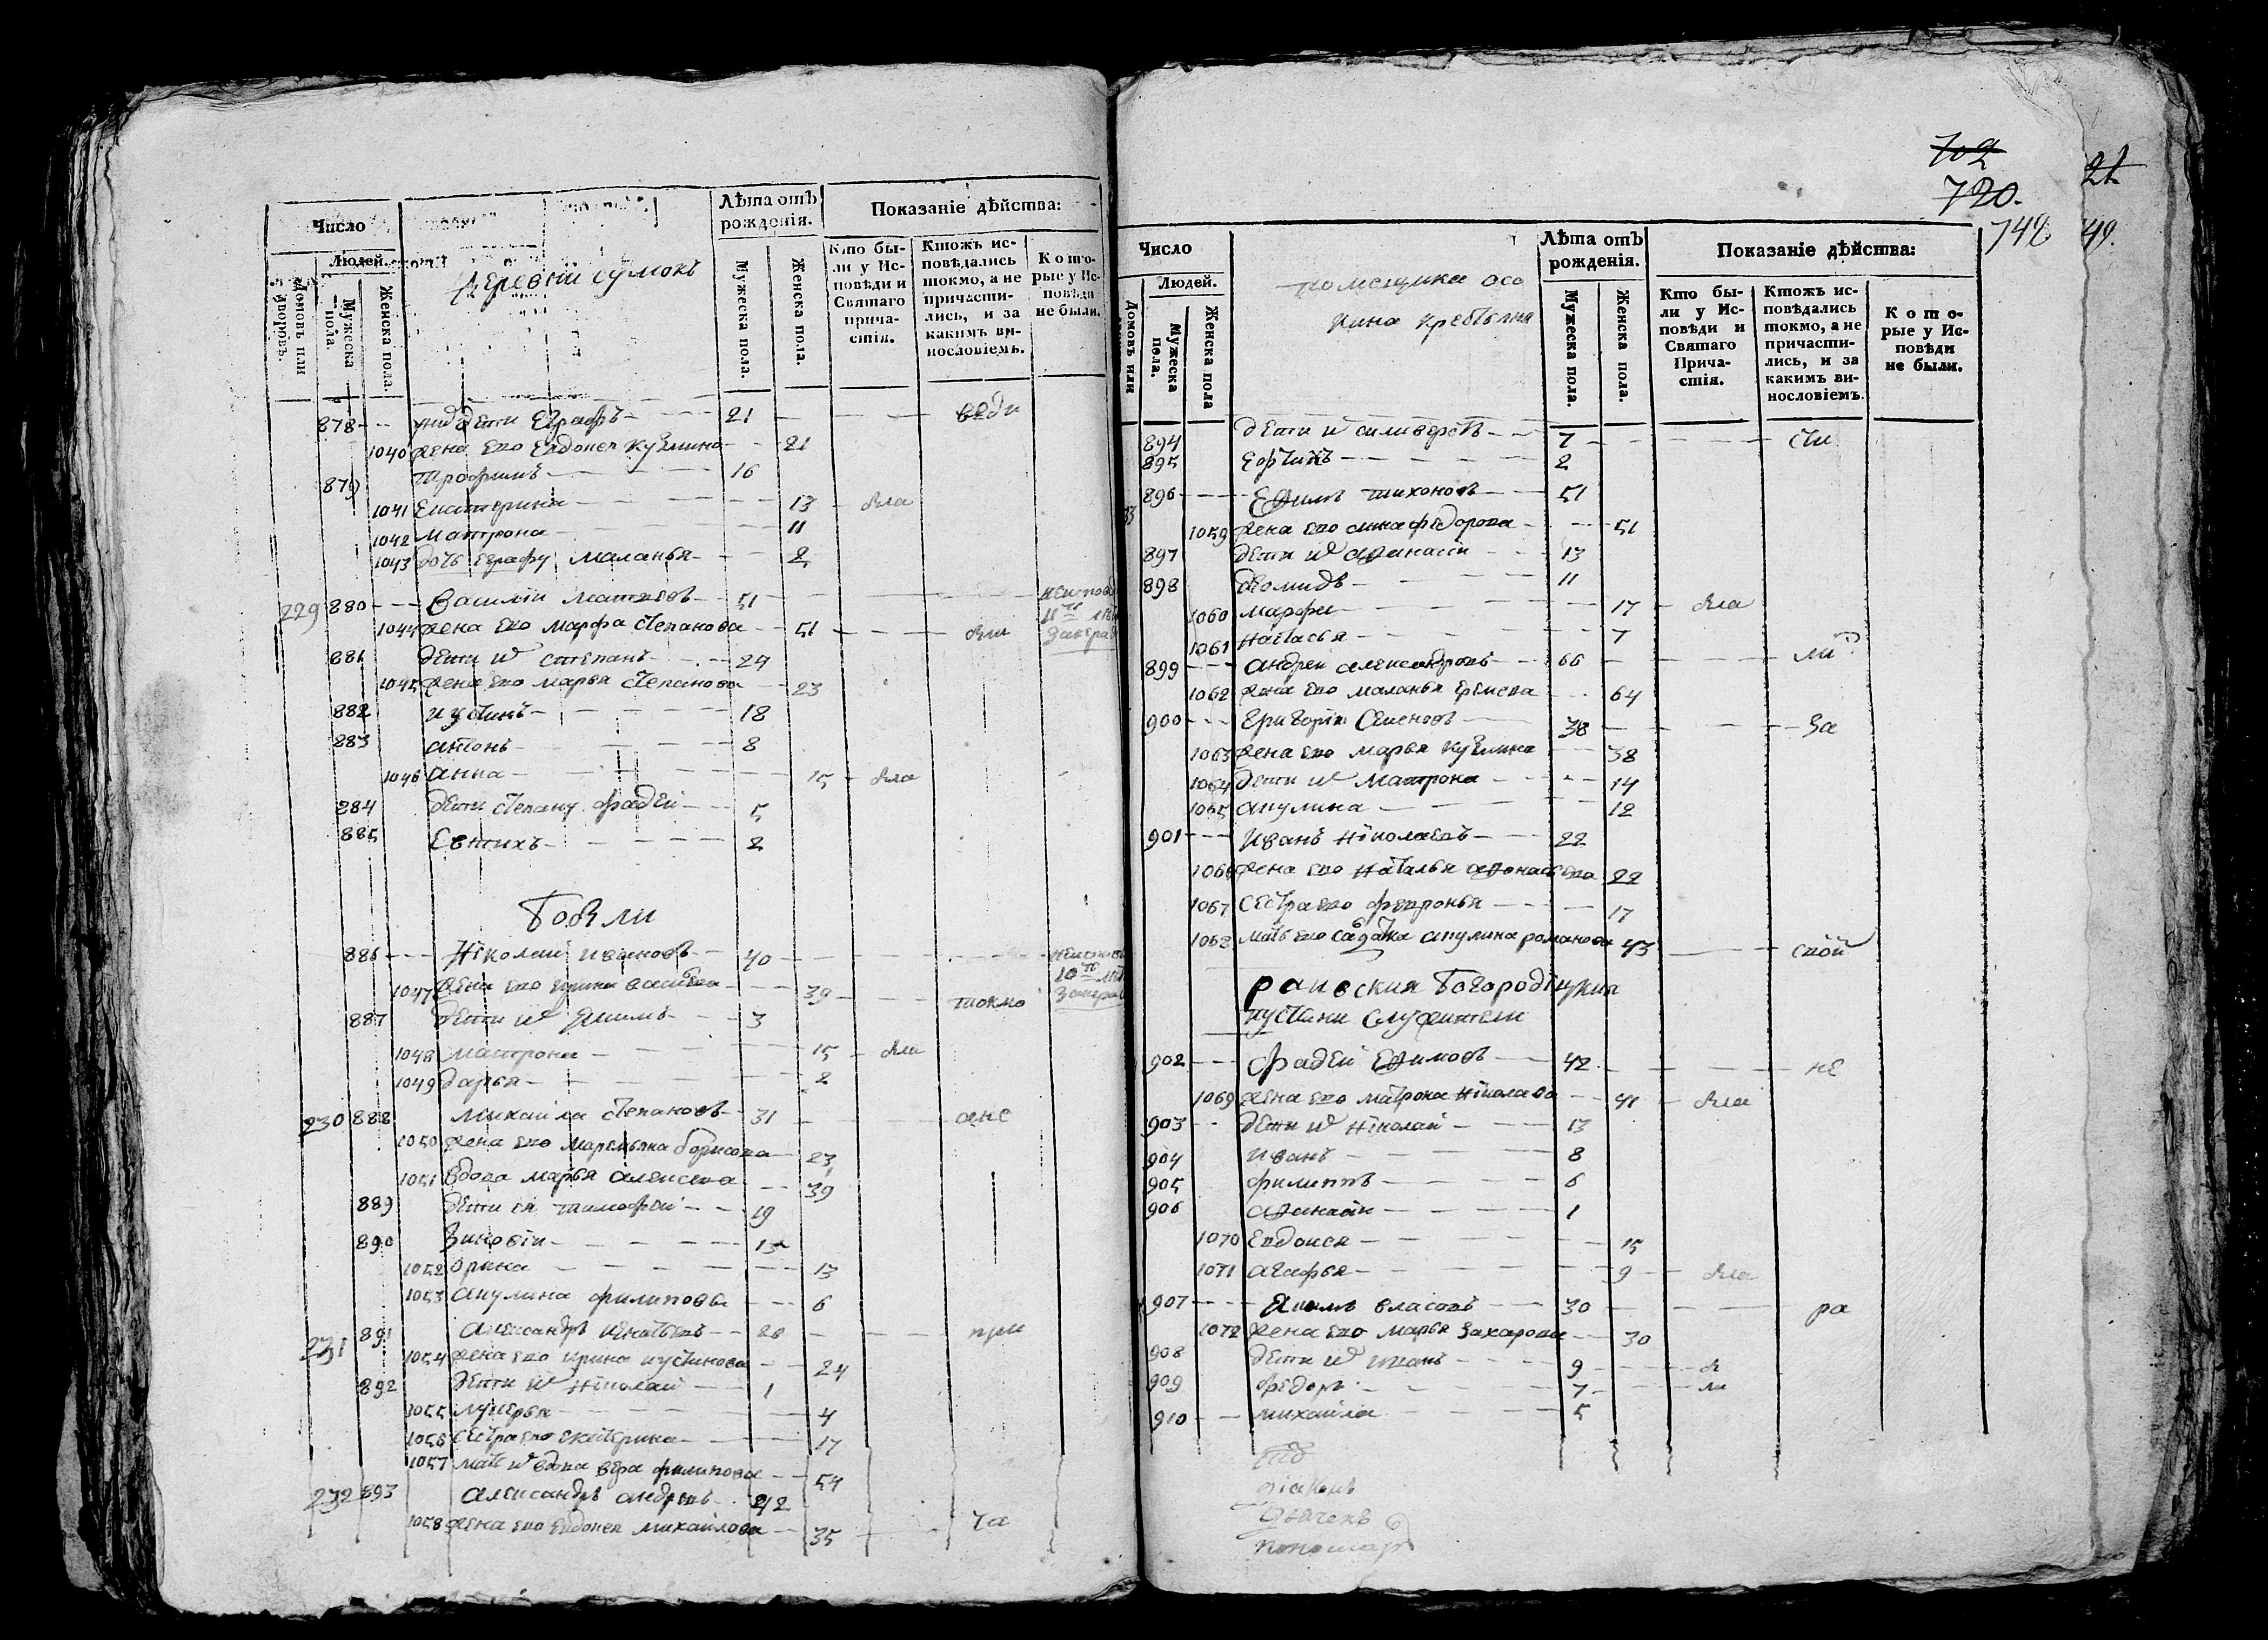 Число
Людей.
Домовъ или дворовъ.
Мужеска пола.
Женска пола.
деревни сумокъ
Лѣта отъ рожденія.
Мужеска пола.
Женска пола.
Показаніе дѣйства:
Кто бы-
ли у Ис-
повѣди и
Святаго
прича-
стія.
Ктожъ ис-
повѣдались
токмо, а не
причасти-
лись, и за
какимъ ви-
нословіемъ.
Кото-
рые у Ис-
повѣди
не были.
878 дети Еграфъ 21
1040 жена ево Евдокея кузмина 21
879 трофимъ 16
1041 Екатерина 13 жла
1042 матрона 11
1043 дочь Еграфу маланья 2
229 880 Василiи матвеевъ 51
1044 жена ево марфа степанова 51 жли
881 дети ихъ степанъ 24
1045 жена ево марья степанова 23
882 иустинъ 18
883 антонъ 8
1046 анна 15 жла
884 дети степану фадеи 5
885 Евтихъ 2
Бобыли
886 Нiколаи ивановъ 40
1047 жена ево 39 токмо
887 дети ихъ якимъ 3
1048 матрона 15 жла
1049 дарья 2
230 888 михаила степановъ 31
1050 жена ево маремьяна борисова 23
1051 вдова марья алексеева 39
889 дети ея тимофеи 19
890 Зиновiи
1052 орина 13
1053 акулина филипова 6
231 891 александръ игнатьевъ при
1054 жена ево ирина иустинова 24
892 дети ихъ нiколаи 1
1055 лукерья 4
1056 сестра ево екатерина 17
1057 мать ихъ вдова вера филипова 54
232 893 александръ андреевъ 42
1058 жена ево евдокея михаилова 35 ча
702
720.
748
21
49.
Число
Людей.
Домовъ или
Мужеска пола.
Женска пола
помещика осо
кина крестьяня
Лѣта отъ рожденія.
Мужеска пола.
Женска пола.
Показаніе дѣйства:
Кто бы-
ли у Ис-
повѣди и
Святаго
Прича-
стія.
Ктожъ ис-
повѣдались
токмо, а не
причасти-
лись, и за
какимъ ви-
нословіемъ.
Кото-
рые у Ис-
повѣди
не были.
894 дети ихъ силиверстъ 7 сти
895 2
896 Ефимъ тихоновъ 51
1059 жена ево федорова 51
897 дети ихъ афанасiи 13
898 деомидъ 11
1060 марфа 17 жла
1061 настасья 7
899 андреи александровъ 66 ли
1062 жена ево маланья еремеева 64
900 Григорiи семеновъ 38 за
1063 жена ево марья кузмина 38
1064 дети ихъ матрона 14
1065 акулина 12
901 Иванъ нiколаевъ 22
1066 жена ево наталья афонасьева 22
1067 сестра ево февронья 17
1068 мать ево салдатка акулина романова 43 ской
раиѳския Богородiцкия
пустани служители
902 фадеи Ефимовъ 42 не
1069 жена ево матрона нiколаева 41 жла
903 дети ихъ нiколаи 13
904 иванъ 8
905 филиппъ 6
906 афанасiи 1
1070 Евдокея 15
1071 агафья 9 жла
907 якимъ власовъ 30 ра
1072 жена ево марья захарова 30
908 дети ихъ иванъ 9 ж
909 федоръ 7 ли
910 михаила 5
дiаконъ
дьячекъ
пономарь